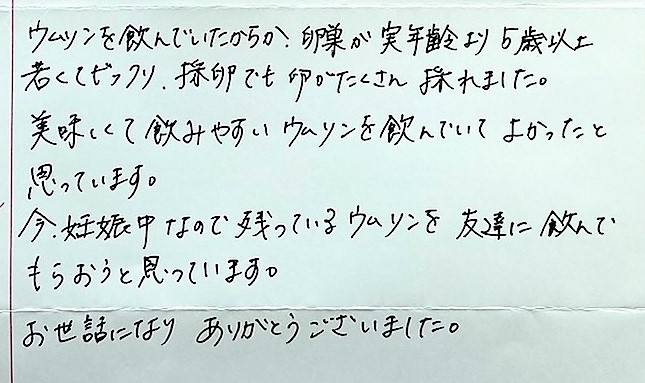 ウムリンを飲んでいたからか、卵巣が実年齢より5歳以上
若くてビックリ、採卵でも卵がたくさん採れました。
美味しくて飲みやすいウムリンを飲んでいてよかったと
思っています。
今、妊娠中なので残っているウムリンを友達に飲んで
もらおうと思っています。
お世話になりありがとうございました。